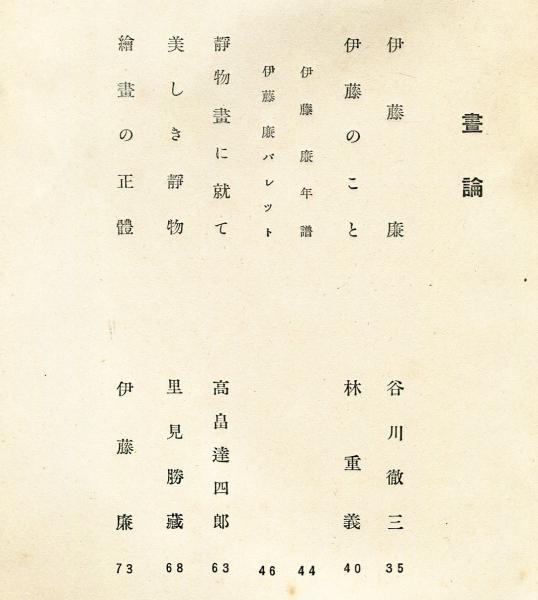 畫論
伊藤廉 谷川徹三 35
伊藤のこと 林重義 40
伊藤廉年譜 44
伊藤廉パレット 46
靜物畫に就て 高畠達四郎 63
美しき靜物 里見勝藏 68
繪畫の正體 伊藤廉 73